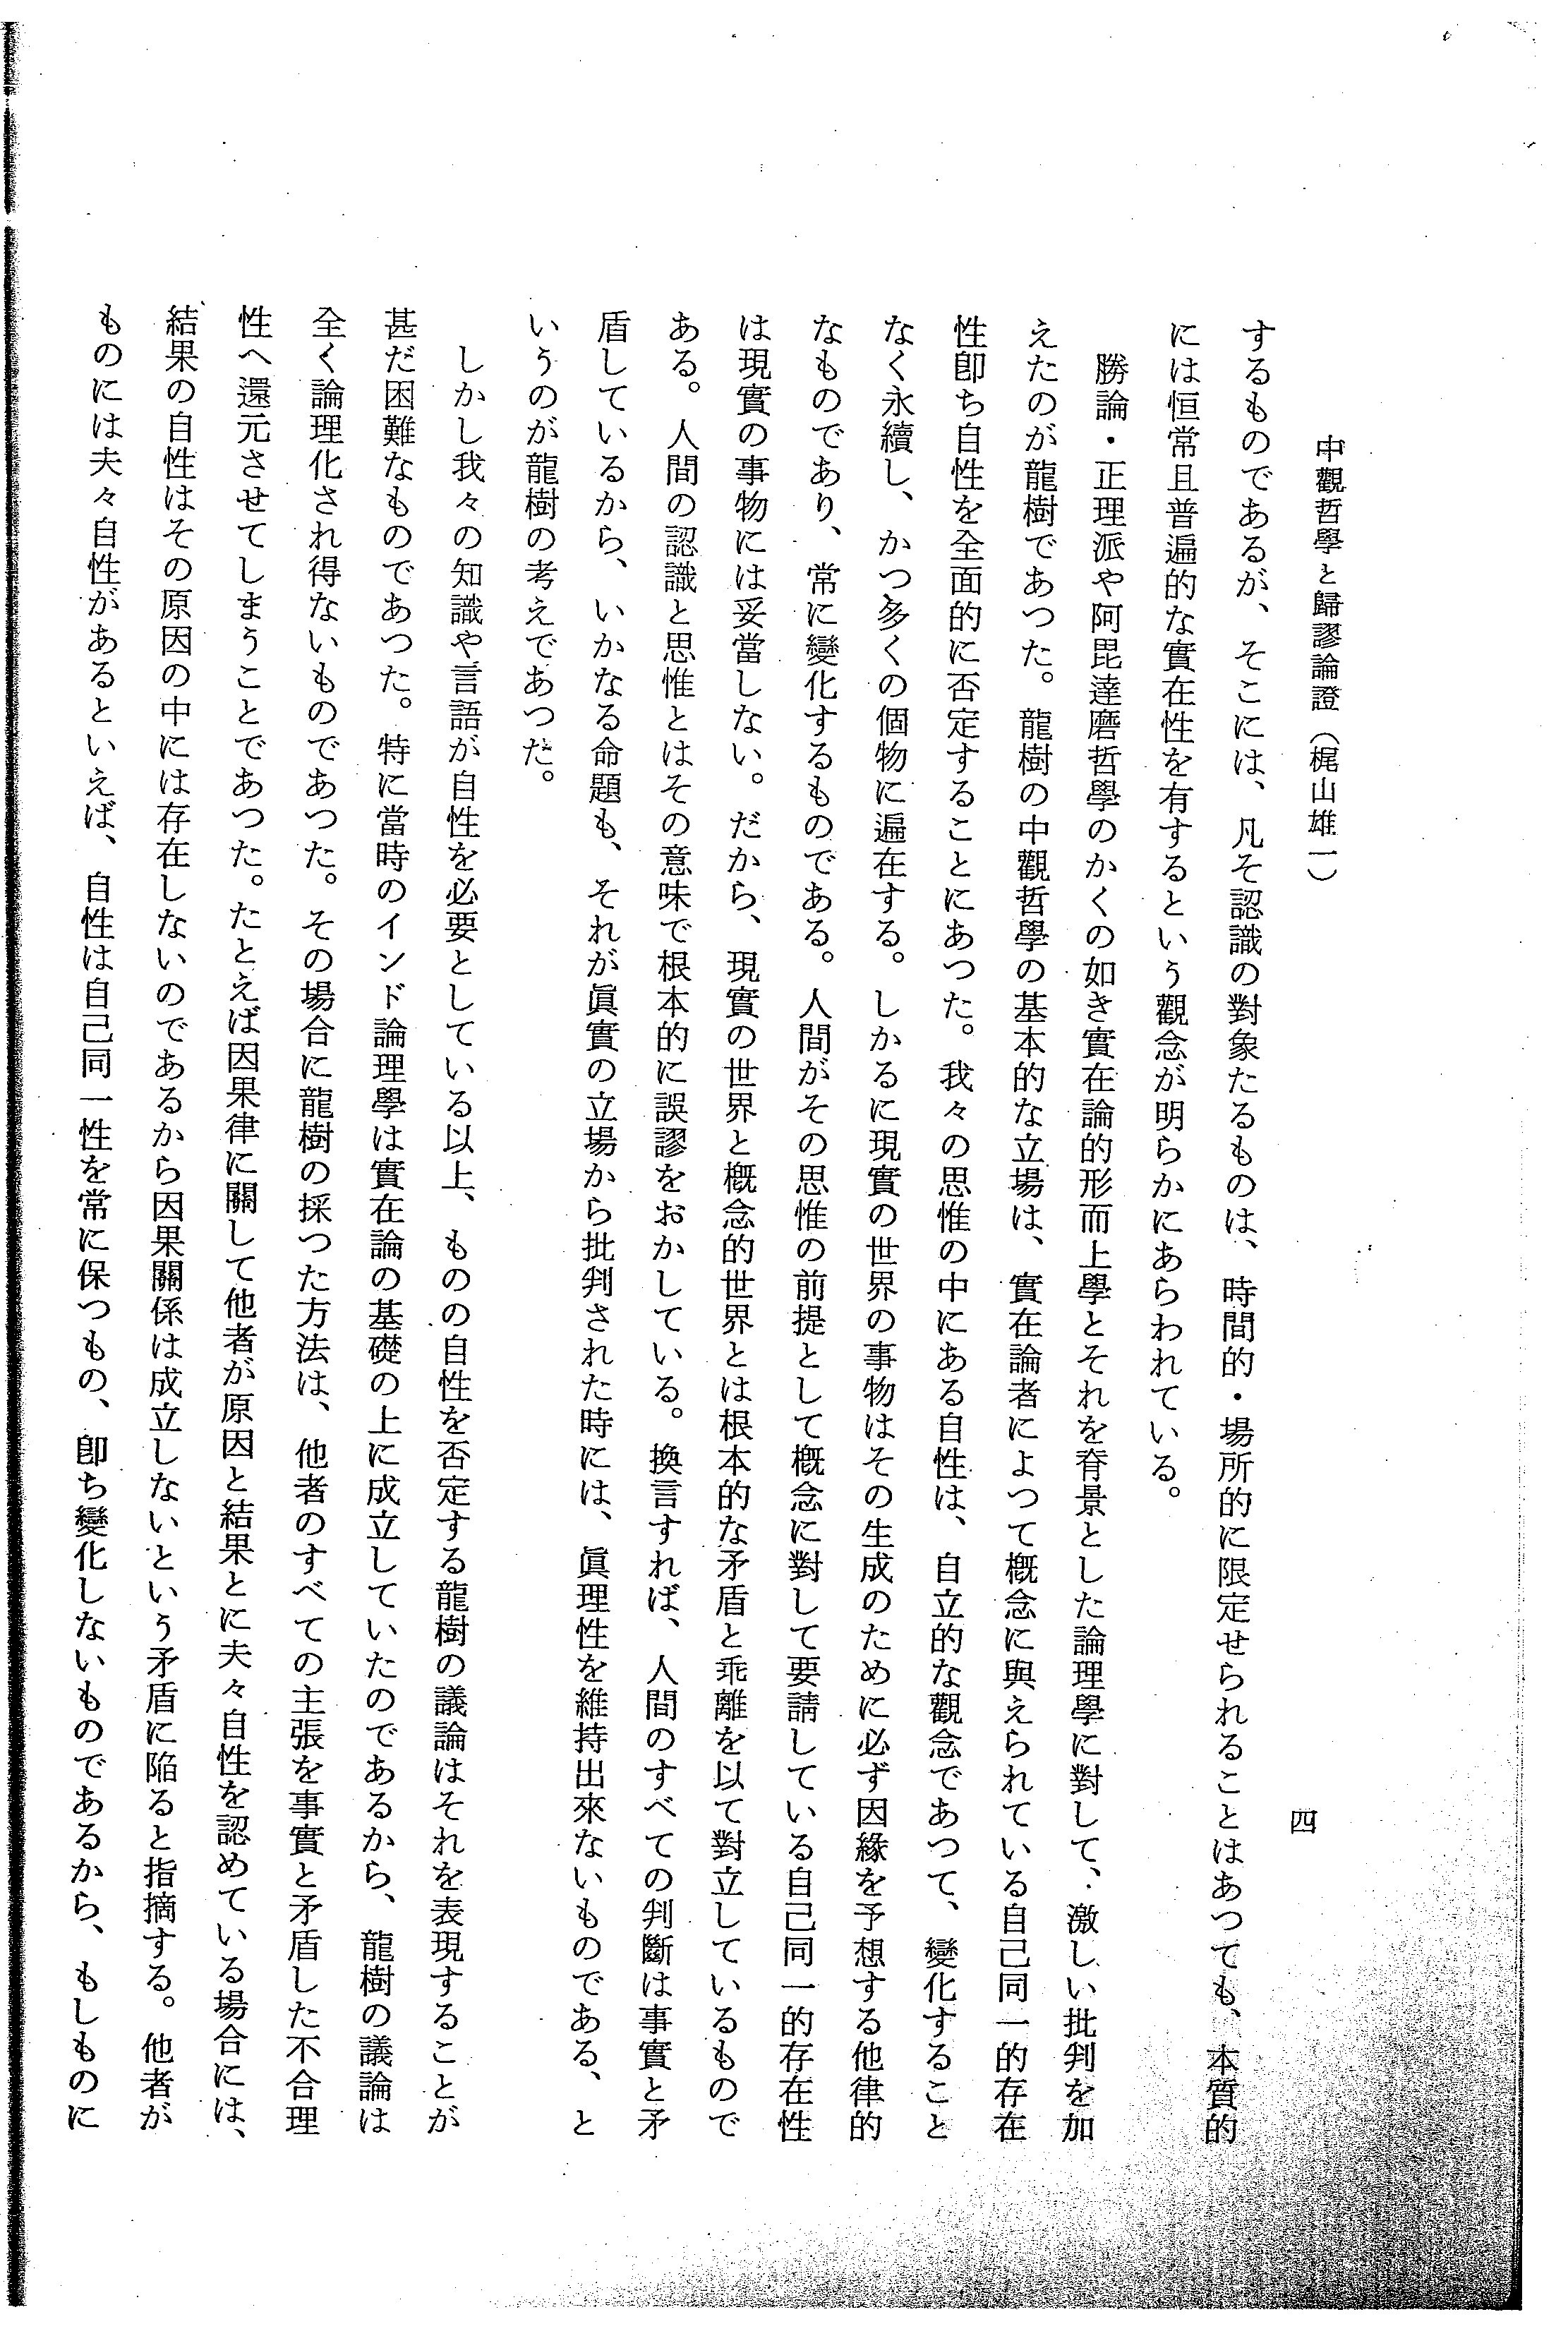 中觀哲學と歸謬論證（梶山雄一）
四
するものであるが、そこには、凡そ認識の對象たるものは、時間的・場所的に限定せられることはあつても、本質的
には恒常且普遍的な實在性を有するという觀念が明らかにあらわれている。
勝論・正理派や阿毘達磨哲學のかくの如き實在論的形而上學とそれを脊景とした論理學に對して、激しい批判を加
えたのが龍樹であつた。龍樹の中觀哲學の基本的な立場は、實在論者によつて概念に與えられている自己同一的存在
性卽ち自性を全面的に否定することにあつた。我々の思惟の中にある自性は、自立的な觀念であつて、變化すること
なく永續し、かつ多くの個物に遍在する。しかるに現實の世界の事物はその生成のために必ず因緣を予想する他律的
なものであり、常に變化するものである。人間がその思惟の前提として概念に對して要請している自己同一的存在性
は現實の事物には妥當しない。だから、現實の世界と概念的世界とは根本的な矛盾と乖離を以て對立しているもので
ある。人間の認識と思惟とはその意味で根本的に誤謬をおかしている。換言すれば、人間のすべての判斷は事實と矛
盾しているから、いかなる命題も、それが眞實の立場から批判された時には、眞理性を維持出來ないものである、と
いうのが龍樹の考えであつた。
しかし我々の知識や言語が自性を必要としている以上、ものの自性を否定する龍樹の議論はそれを表現することが
甚だ困難なものであつた。特に當時のインド論理學は實在論の基礎の上に成立していたのであるから、龍樹の議論は
全く論理化され得ないものであつた。その場合に龍樹の採つた方法は、他者のすべての主張を事實と矛盾した不合理
性へ還元させてしまうことであつた。たとえば因果律に關して他者が原因と結果とに夫々自性を認めている場合には、
結果の自性はその原因の中には存在しないのであるから因果關係は成立しないという矛盾に陷ると指摘する。他者が
ものには夫々自性があるといえば、自性は自己同一性を常に保つもの、卽ち變化しないものであるから、もしものに